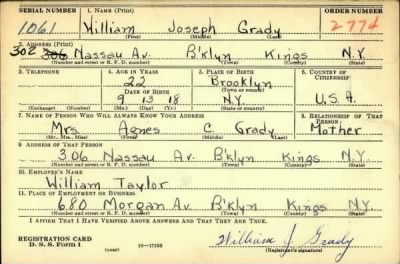 SERIAL NUMBER 1. NAME (Print) ORDER NUMBER
1061 William Joseph Grady 2774
(First) (Middle) (Last)
2. ADDRESS (Print)
302 306 Nassau Av. B'klyn Kings N.Y.
(Number and street or R. F. D. number) (Town) (County) (State)
3. TELEPHONE 4. AGE IN YEARS 5. PLACE OF BIRTH 6. COUNTRY OF CITIZENSHIP
22 Brooklyn
DATE OF BIRTH (Town or county)
9 13 18 N.Y. U.S.A.
(Exchange) (Number) (Mo.) (Day) (Yr.) (State or country)
7. NAME OF PERSON WHO WILL ALWAYS KNOW YOUR ADDRESS 8. RELATIONSHIP OF THAT PERSON
Mrs. Agnes C Grady Mother
(Mr., Mrs., Miss) (First) (Middle) (Last)
9. ADDRESS OF THAT PERSON
306 Nassau Av. B'klyn Kings N.Y.
(Number and street or R. F. D. number) (Town) (County) (State)
10. EMPLOYER'S NAME
William Taylor
11. PLACE OF EMPLOYMENT OR BUSINESS
680 Morgan Av B'klyn Kings N.Y.
(Number and street or R. F. D. number) (Town) (County) (State)
I AFFIRM THAT I HAVE VERIFIED ABOVE ANSWERS AND THAT THEY ARE TRUE.
REGISTRATION CARD
D. S. S. Form 1 16—17105 William J. Grady
(Registrant's signature)